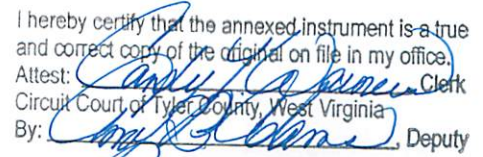 I hereby certify that the annexed instrument is a true
and correct copy of the original on file in my office.
Attest: Clerk
Circuit Court of Tyler County, West Virginia
By: Deputy